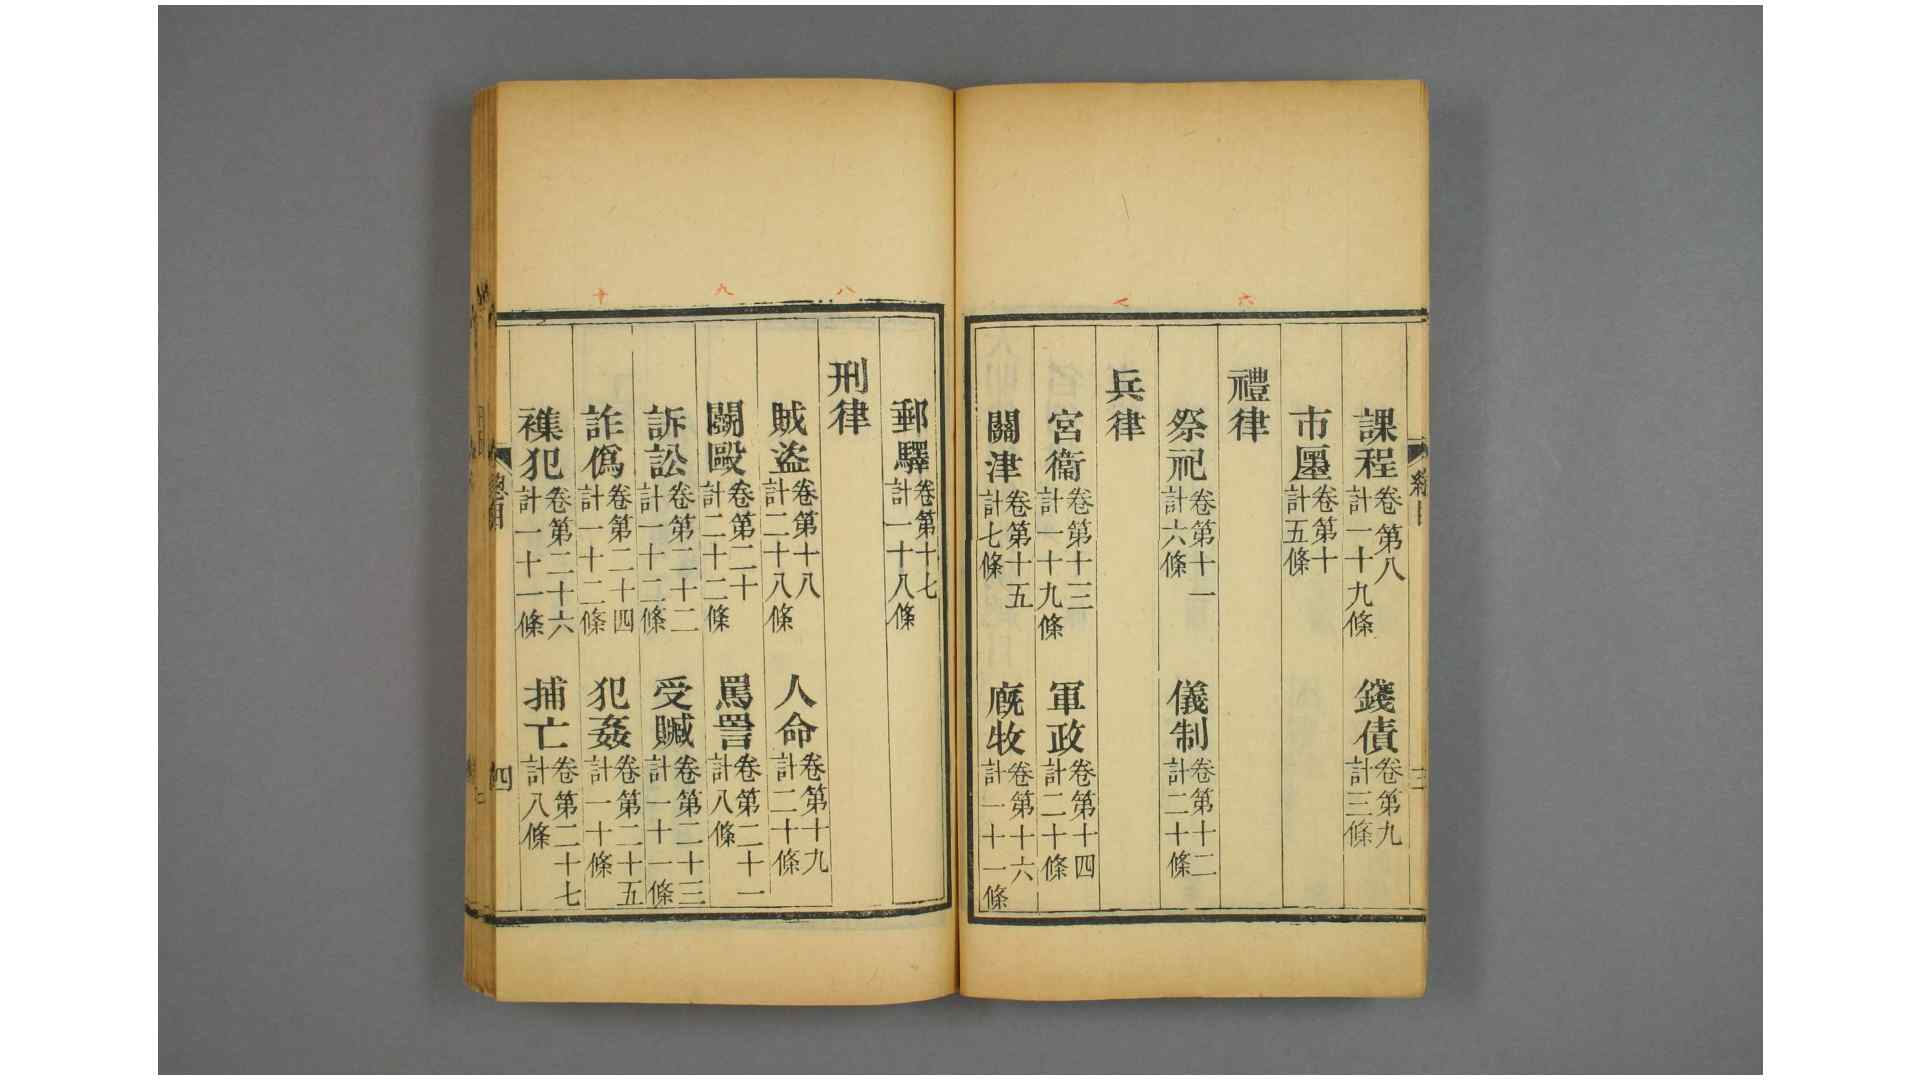 課程 卷第八 計一十九條 錢債 卷第九 計三條
市廛 卷第十 計五條
禮律
祭祀 卷第十一 計六條 儀制 卷第十二 計二十條
兵律
宮衞 卷第十三 計一十九條 軍政 卷第十四 計二十條
關津 卷第十五 計七條 廐牧 卷第十六 計一十一條
郵驛 卷第十七 計一十八條
刑律
賊盜 卷第十八 計二十八條 人命 卷第十九 計二十條
鬭毆 卷第二十 計二十二條 罵詈 卷第二十一 計八條
訴訟 卷第二十二 計一十二條 受贓 卷第二十三 計一十一條
詐僞 卷第二十四 計一十二條 犯姦 卷第二十五 計一十條
襍犯 卷第二十六 計一十一條 捕亡 卷第二十七 計八條
總目 四
六
八
九
十